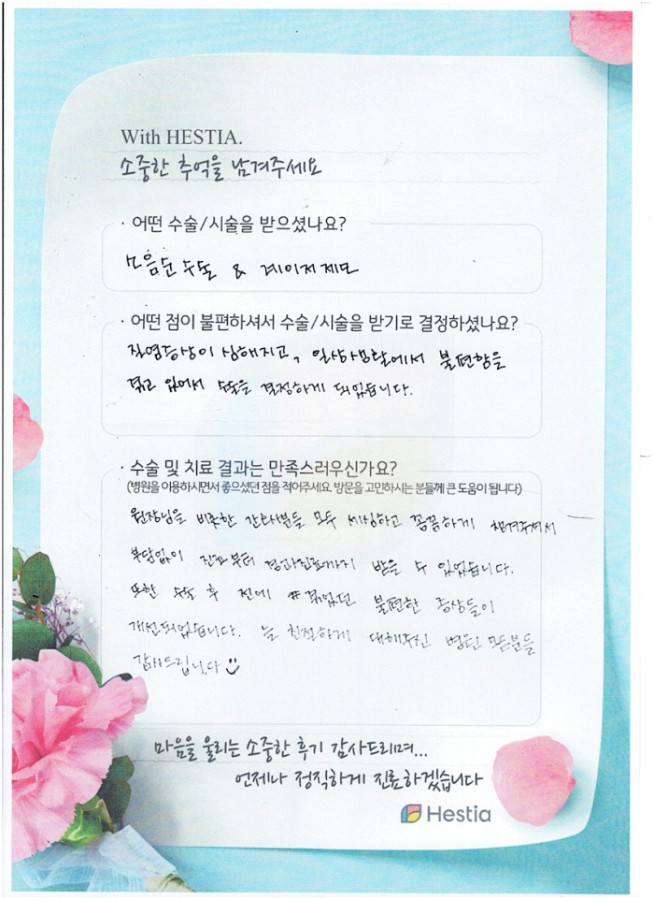 With HESTIA.
소중한 추억을 남겨주세요
· 어떤 수술/시술을 받으셨나요?
소음순 수술 & 레이저 제모
· 어떤 점이 불편하셔서 수술/시술을 받기로 결정하셨나요?
질염증상이 심해지고, 일상생활에서 불편함을
겪고 있어서 수술을 결정하게 되었습니다.
· 수술 및 치료 결과는 만족스러우신가요?
(병원을 이용하시면서 좋으셨던 점을 적어주세요. 방문을 고민하시는 분들께 큰 도움이 됩니다)
원장님을 비롯한 간호사분들 모두 세심하고 꼼꼼하게 챙겨주셔서
부담없이 진료부터 경과진료까지 받을 수 있었습니다.
또한 수술 후 전에 겪었던 불편한 증상들이
개선되었습니다. 늘 친절하게 대해주신 병원 모든분들
감사드립니다
마음을 울리는 소중한 후기 감사드리며...
언제나 정직하게 진료하겠습니다
Hestia